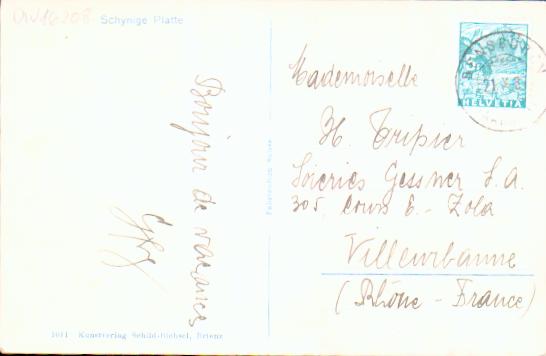 Schynige Platte
Bonjour de vacances
1011 Kunstverlag Schild-Bichsel, Brienz
HELVETIA
Mademoiselle
H. Tripier
Soieries Gessner S.A.
305, Cours E.-Zola
Villeurbanne
(Rhône - France)